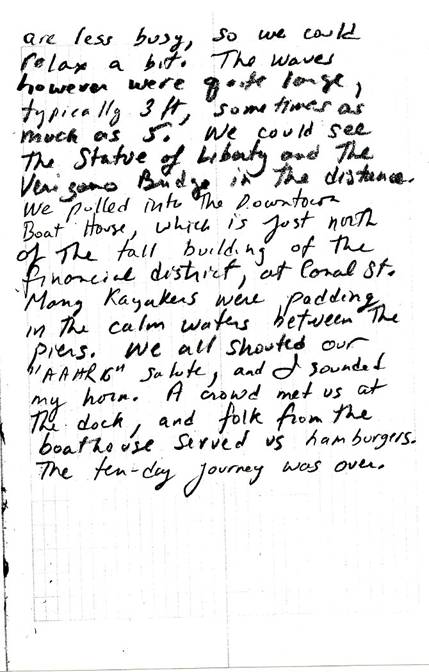 are less busy, so we could
relax a bit. The waves
however were quite large,
typically 3 ft, sometimes as
much as 5. We could see
The Statue of Liberty and The
Bridge in The distance.
We pulled into The Downtown
Boat House, which is just north
of The tall building of the
financial district, at Canal St.
Many Kayakers were padding
in the calm waters between The
piers. We all shouted our
"AAHRG" salute, and I sounded
my horn. A crowd met us at
The dock, and folk from the
boathouse served us hamburgers.
The ten-day journey was over.